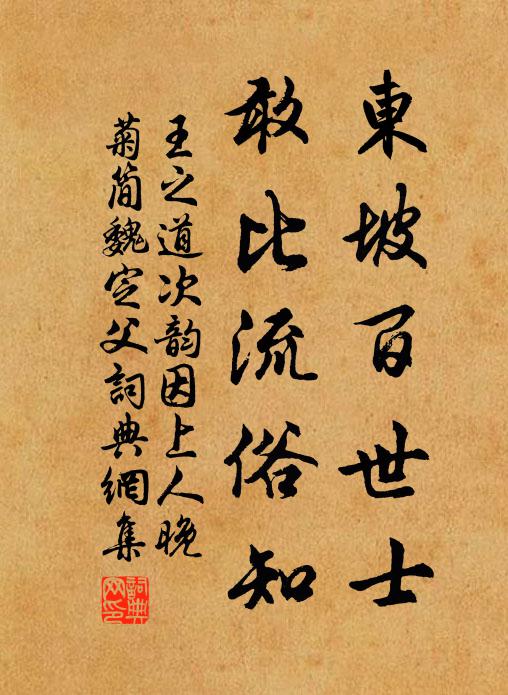 東坡百世士
敢比流俗知
王之道次韵因上人晚
菊简魏定父詞典網集
詞典網印